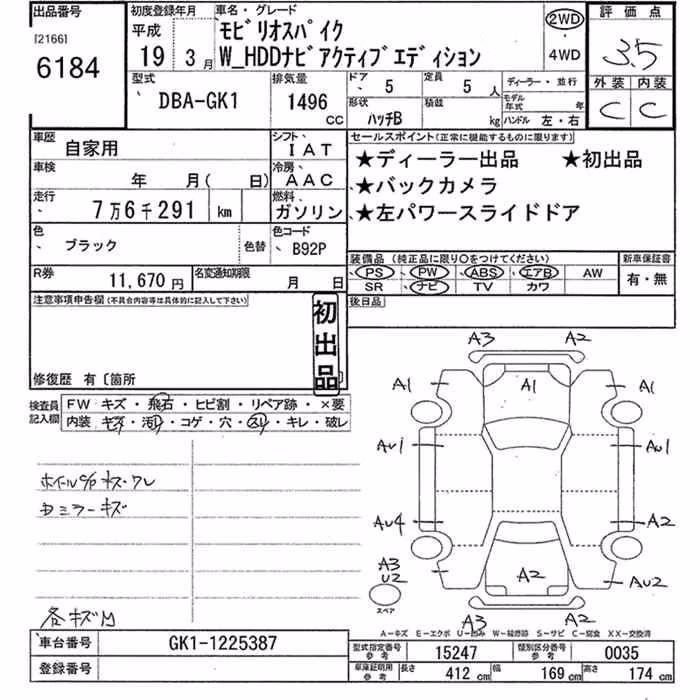 出品番号
[2166]
6184
初度登録年月
平成
19 3月
車名・グレード
モビリオスパイク
W_HDDナビアクティブエディション
2WD
・
4WD
評価点
3.5
外装 内装
C C
型式
DBA-GK1
排気量
1496
CC
ドア
5
定員
5 人
ディーラー・並行
形状
ハッチB
積載
kg
モデル年式
年
ハンドル 左・右
車歴
自家用
シフト
IAT
車検
年 月( 日)
冷房
AAC
走行
7万6千291 km
燃料
ガソリン
色
ブラック
色替
色コード
B92P
R券
11,670円
名変通知期限
月 日
セールスポイント(正常に機能するものに限ります)
★ディーラー出品 ★初出品
★バックカメラ
★左パワースライドドア
装備品(純正品に限り○をつけてください)
PS PW ABS エアB AW
SR ナビ TV カワ
新車保証書
有・無
後日品
注意事項申告欄(不具合内容等は具体的に記入して下さい)
初出品
修復歴 有〔箇所 〕
検査員記入欄
FW キズ・飛石・ヒビ割・リペア跡・×要
内装 キズ・汚れ・コゲ・穴・スレ・キレ・破レ
ミラーキズ
各キズ
A3 A2
A1 A1 A1
AU1 AU1
AU4 A2
A3
U2
スペア
A2
AU2
A3 A2
A-キズ E-エクボ U-凹み W-補修跡 S-サビ C-腐食 XX-交換済
車台番号
GK1-1225387
登録番号
型式指定番号
参考
15247
類別区分番号
参考
0035
車庫証明用
参考
長さ 412 cm 幅 169 cm 高さ 174 cm